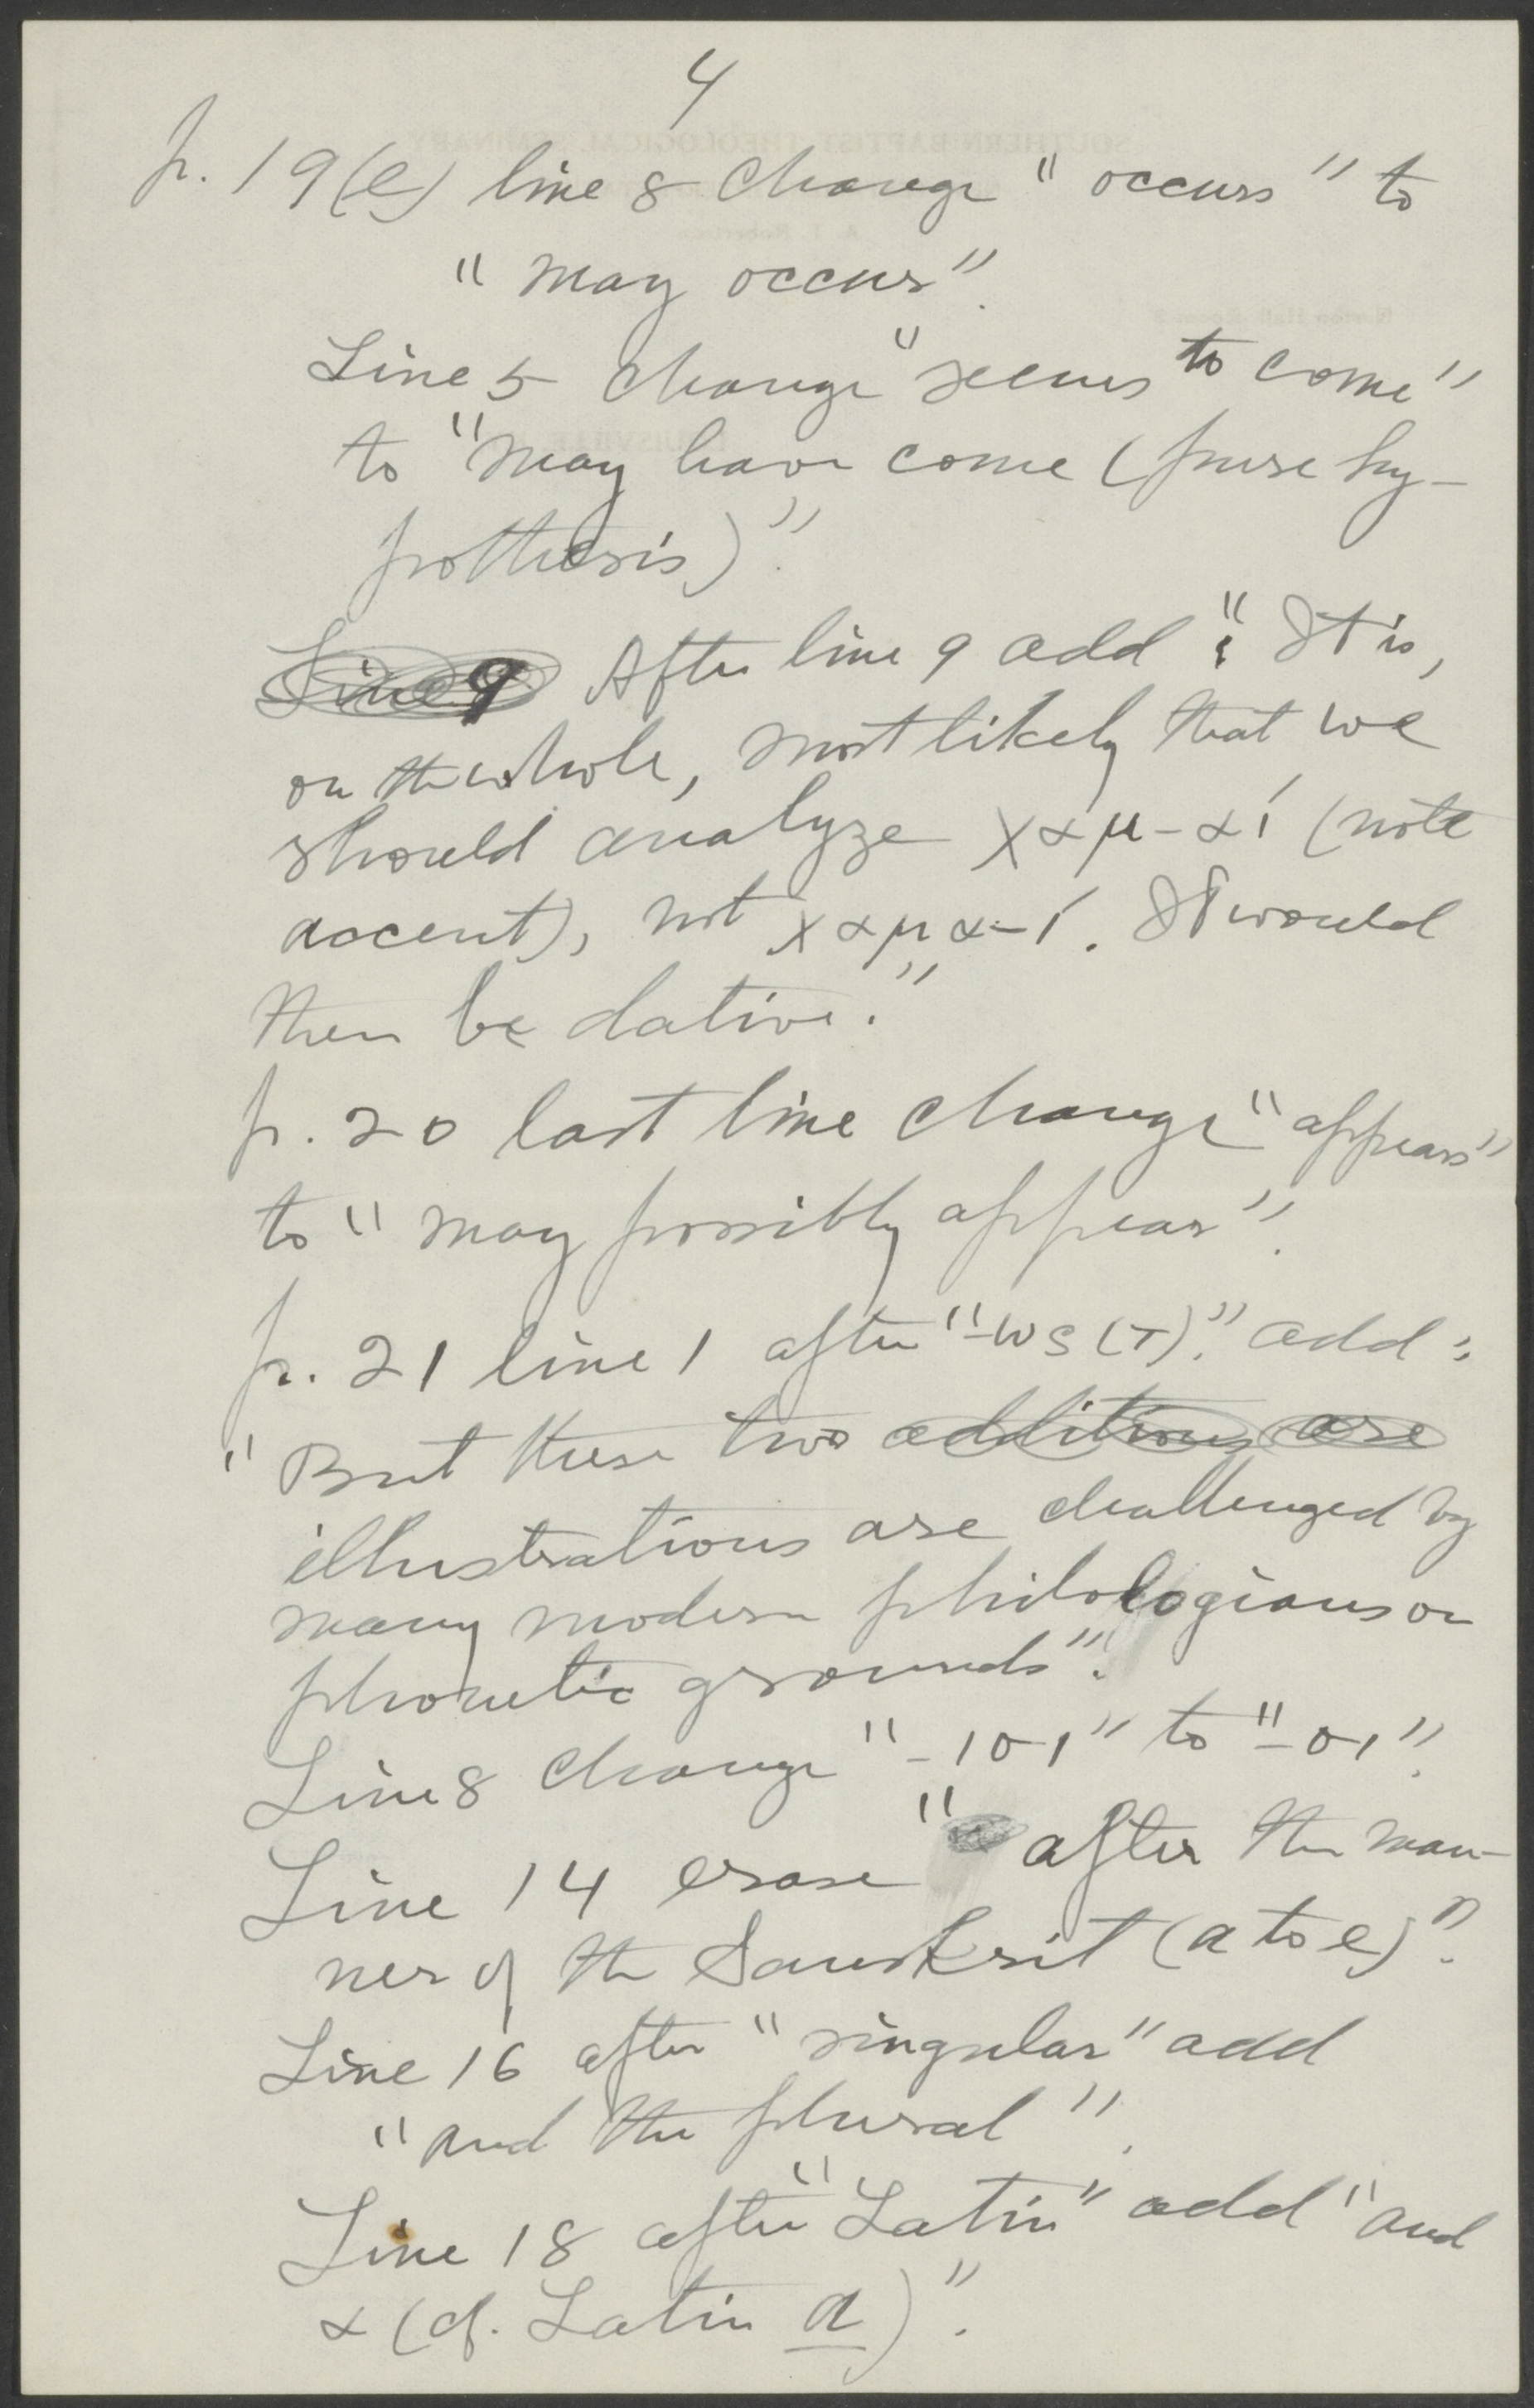 4
p. 19(e) line 8 change "occurs" to
"may occur".
Line 5 change "seems to come"
to "may have come (pure hy-
pothesis)".
Line 9 After line 9 add: "It is,
on the whole, most likely that we
should analyze χαμ-αί (note
accent), not χαμα-ί. It would
then be dative."
p. 20 last line change "appears"
to "may possibly appear".
p. 21 line 1 after "-ως (τ)." add:
"But these two additions are
illustrations are challenged by
many modern philologians on
phonetic grounds".
Line 8 change "-ιο-ι" to "-ο-ι".
Line 14 erase "after the man-
ner of the Sanskrit (a to e)".
Line 16 after "singular" add
"and the plural".
Line 18 after "Latin" add "and
α (cf. Latin a)".